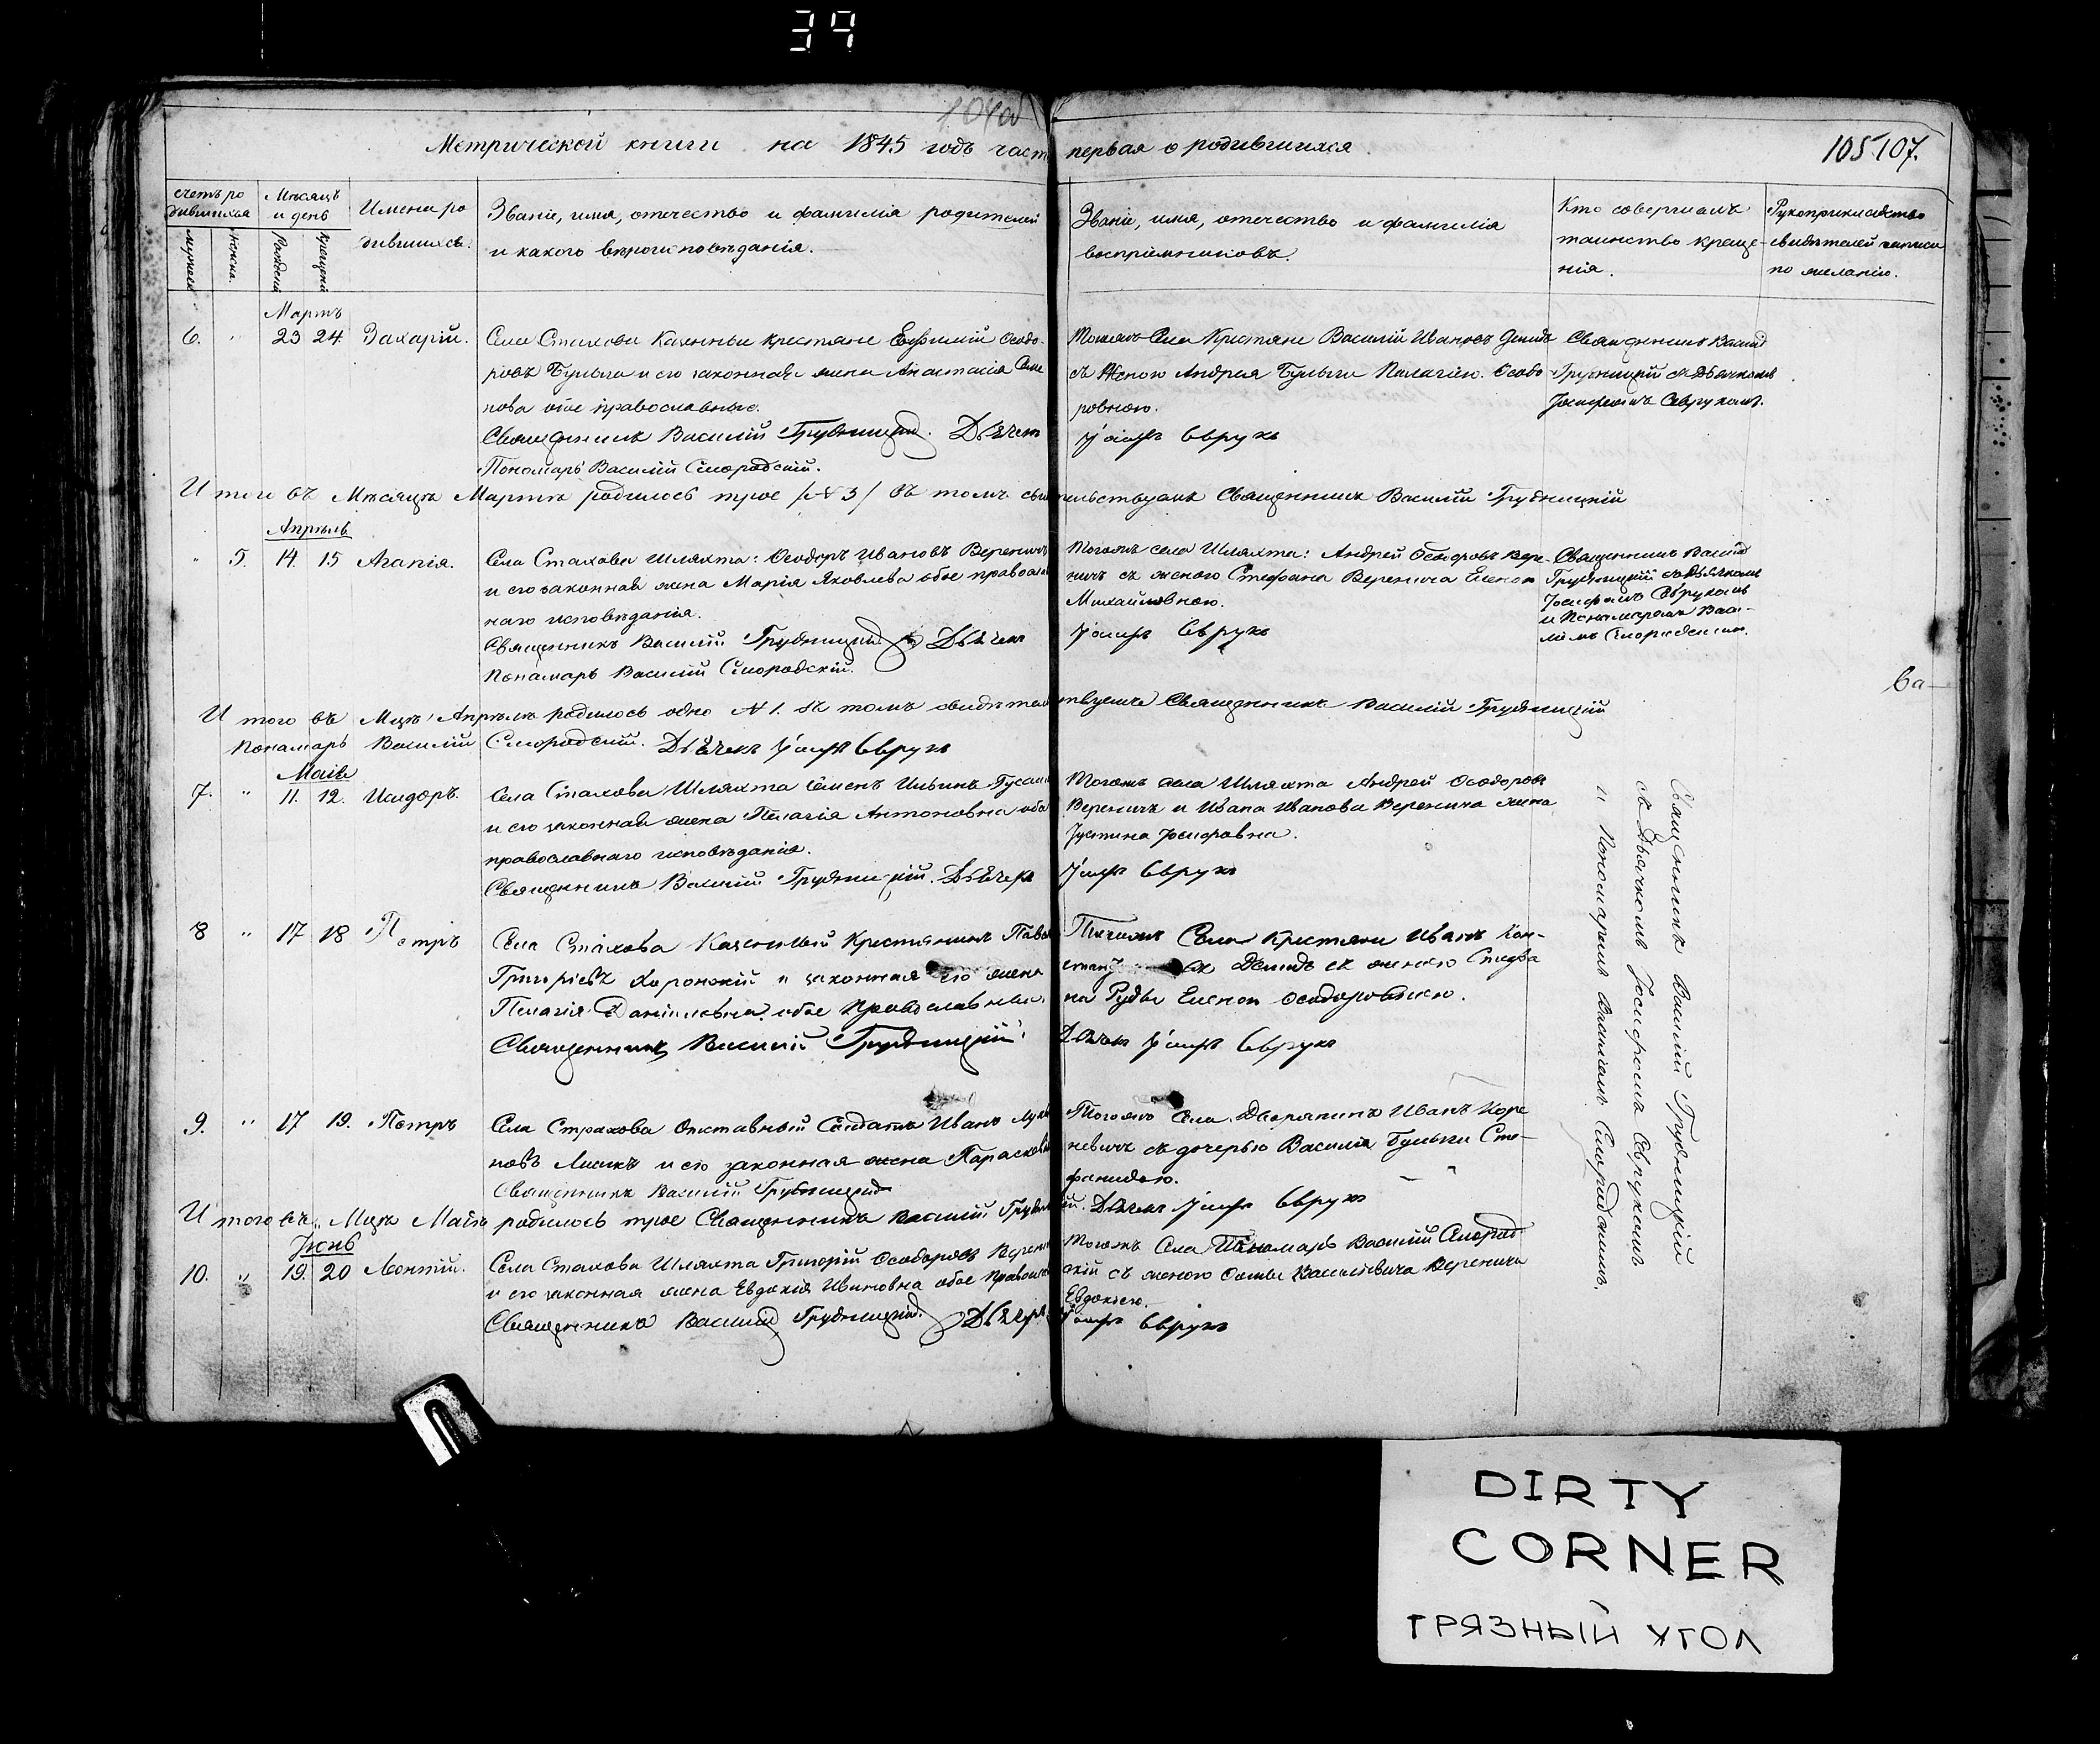 34
Метрической книги на 1845 годъ част первая о родившихся.
105 107.
счетъ ро
дившихся
Мѣсяцъ
и день
Имена ро
дившихся.
Званіе, имя, отечество и фамилія родителей
и какого вѣроисповѣданія.
Званіе, имя, отечество и фамилія
воспріемниковъ.
Кто совершалъ
таинство креще-
нія.
Рукоприкладство
свидѣтелей записи
по желанію.
мужеск
женска.
Рожденія
крещенія
Мартъ
6. " 23 24 Захарій.
Села Стахова Казенные крестяне Евфимій Ѳеодо-
ровъ Булыга и его законная жена Анастасія Семе
нова обое православные.
Священникъ Василій Грудницкій. Дьячек
Пономарь Василій Смородскій.
Тогожъ Села Крестяне Василій Ивановъ Демидъ
съ Женою Андрея Булыги Палагіею Ѳеодо-
ровною.
Іосифъ Сврукъ
Священникъ Василій
Грудницкій съ Дьячкомъ
Іосифомъ Сврукомъ.
И того въ Мѣсяцѣ Мартѣ родилось трое /N 3/ въ томъ сви тельствуетъ Священникъ Василій Грудницкій
Апрѣль
" 5. 14. 15 Агапія.
Села Стахова Шляхта: Ѳеодоръ Ивановъ Веренич
и его законная жена Марія Яковлева обое православ
наго исповѣданія.
Священникъ Василій Грудницкій Дьячек
Понамарь Василій Смородскій.
Тогожъ села Шляхта: Андрей Ѳеодоровъ Вере-
ничъ съ женою Стефана Веренича Еленою
Михайловною.
Іосифъ Сврукъ
Священникъ Василій
Грудницкій съ Дьячкомъ
Іосифомъ Сврукомъ
и Понамаремъ Васи-
ліемъ Смородскимъ.
И того въ Мцѣ Апрѣлѣ родилось одно N 1. въ томъ свидѣтел твуетъ Священникъ Василій Грудницкій
Понамарь Василій Смородскій. Дьячекъ Іосифъ Сврукъ
Маія
7. " 11. 12. Исидоръ.
Села Стахова Шляхта Семенъ Ильинъ
и его законная жена Пелагія Антоновна обое
православнаго исповѣданія.
Священникъ Василій Грудницкій. Дьячек
Тогожъ села Шляхта Андрей Ѳеодоровъ
Вереничъ и Ивана Иванова Веренича жена
Іустина Іосифовна.
Іосифъ Сврукъ
Священникъ Василій Грудницкій
съ Дьячкомъ Іосифомъ Сврукомъ
и Пономаремъ Василіемъ Смородскимъ.
8 " 17 18 Петръ
Села Стахова Казенный Крестянинъ Павел
Григоріевъ Хоронжій и законная его жена
Пелагія Даніиловна обое Православные.
Священникъ Василій Грудницкій
Тогожъ Села Крестяни Иванъ Кон-
Демидъ съ женою
на Руды Еленою Ѳеодоровною.
Дьячекъ Іосифъ Сврукъ
9. " 17 19. Петръ
Села Страхова Отставный Солдатъ Иванъ
новъ и его законная жена Параскева
Священникъ Василій Грудницкій
Тогожъ Села Дворянинъ Иванъ Коре
невичъ съ дочерью Василія Булыги Сте-
фанидою.
И того въ Мцѣ Маіѣ родилось трое Священникъ Василій Грудницкій. Дьячекъ Іосифъ Сврукъ
Іюнь
10. " 19. 20 Леонтій.
Села Стахова Шляхта Григорій Ѳеодоровъ Верени
и его законная жена Евдокія Ивановна обое Православ
Священникъ Василій Грудницкій. Дьячек
Тогожъ Села Пономарь Василій Смород
скій съ женою Василіевича Веренича
Евдокіею.
Іосифъ Сврукъ
DIRTY
CORNER
ГРЯЗНЫЙ УГОЛ